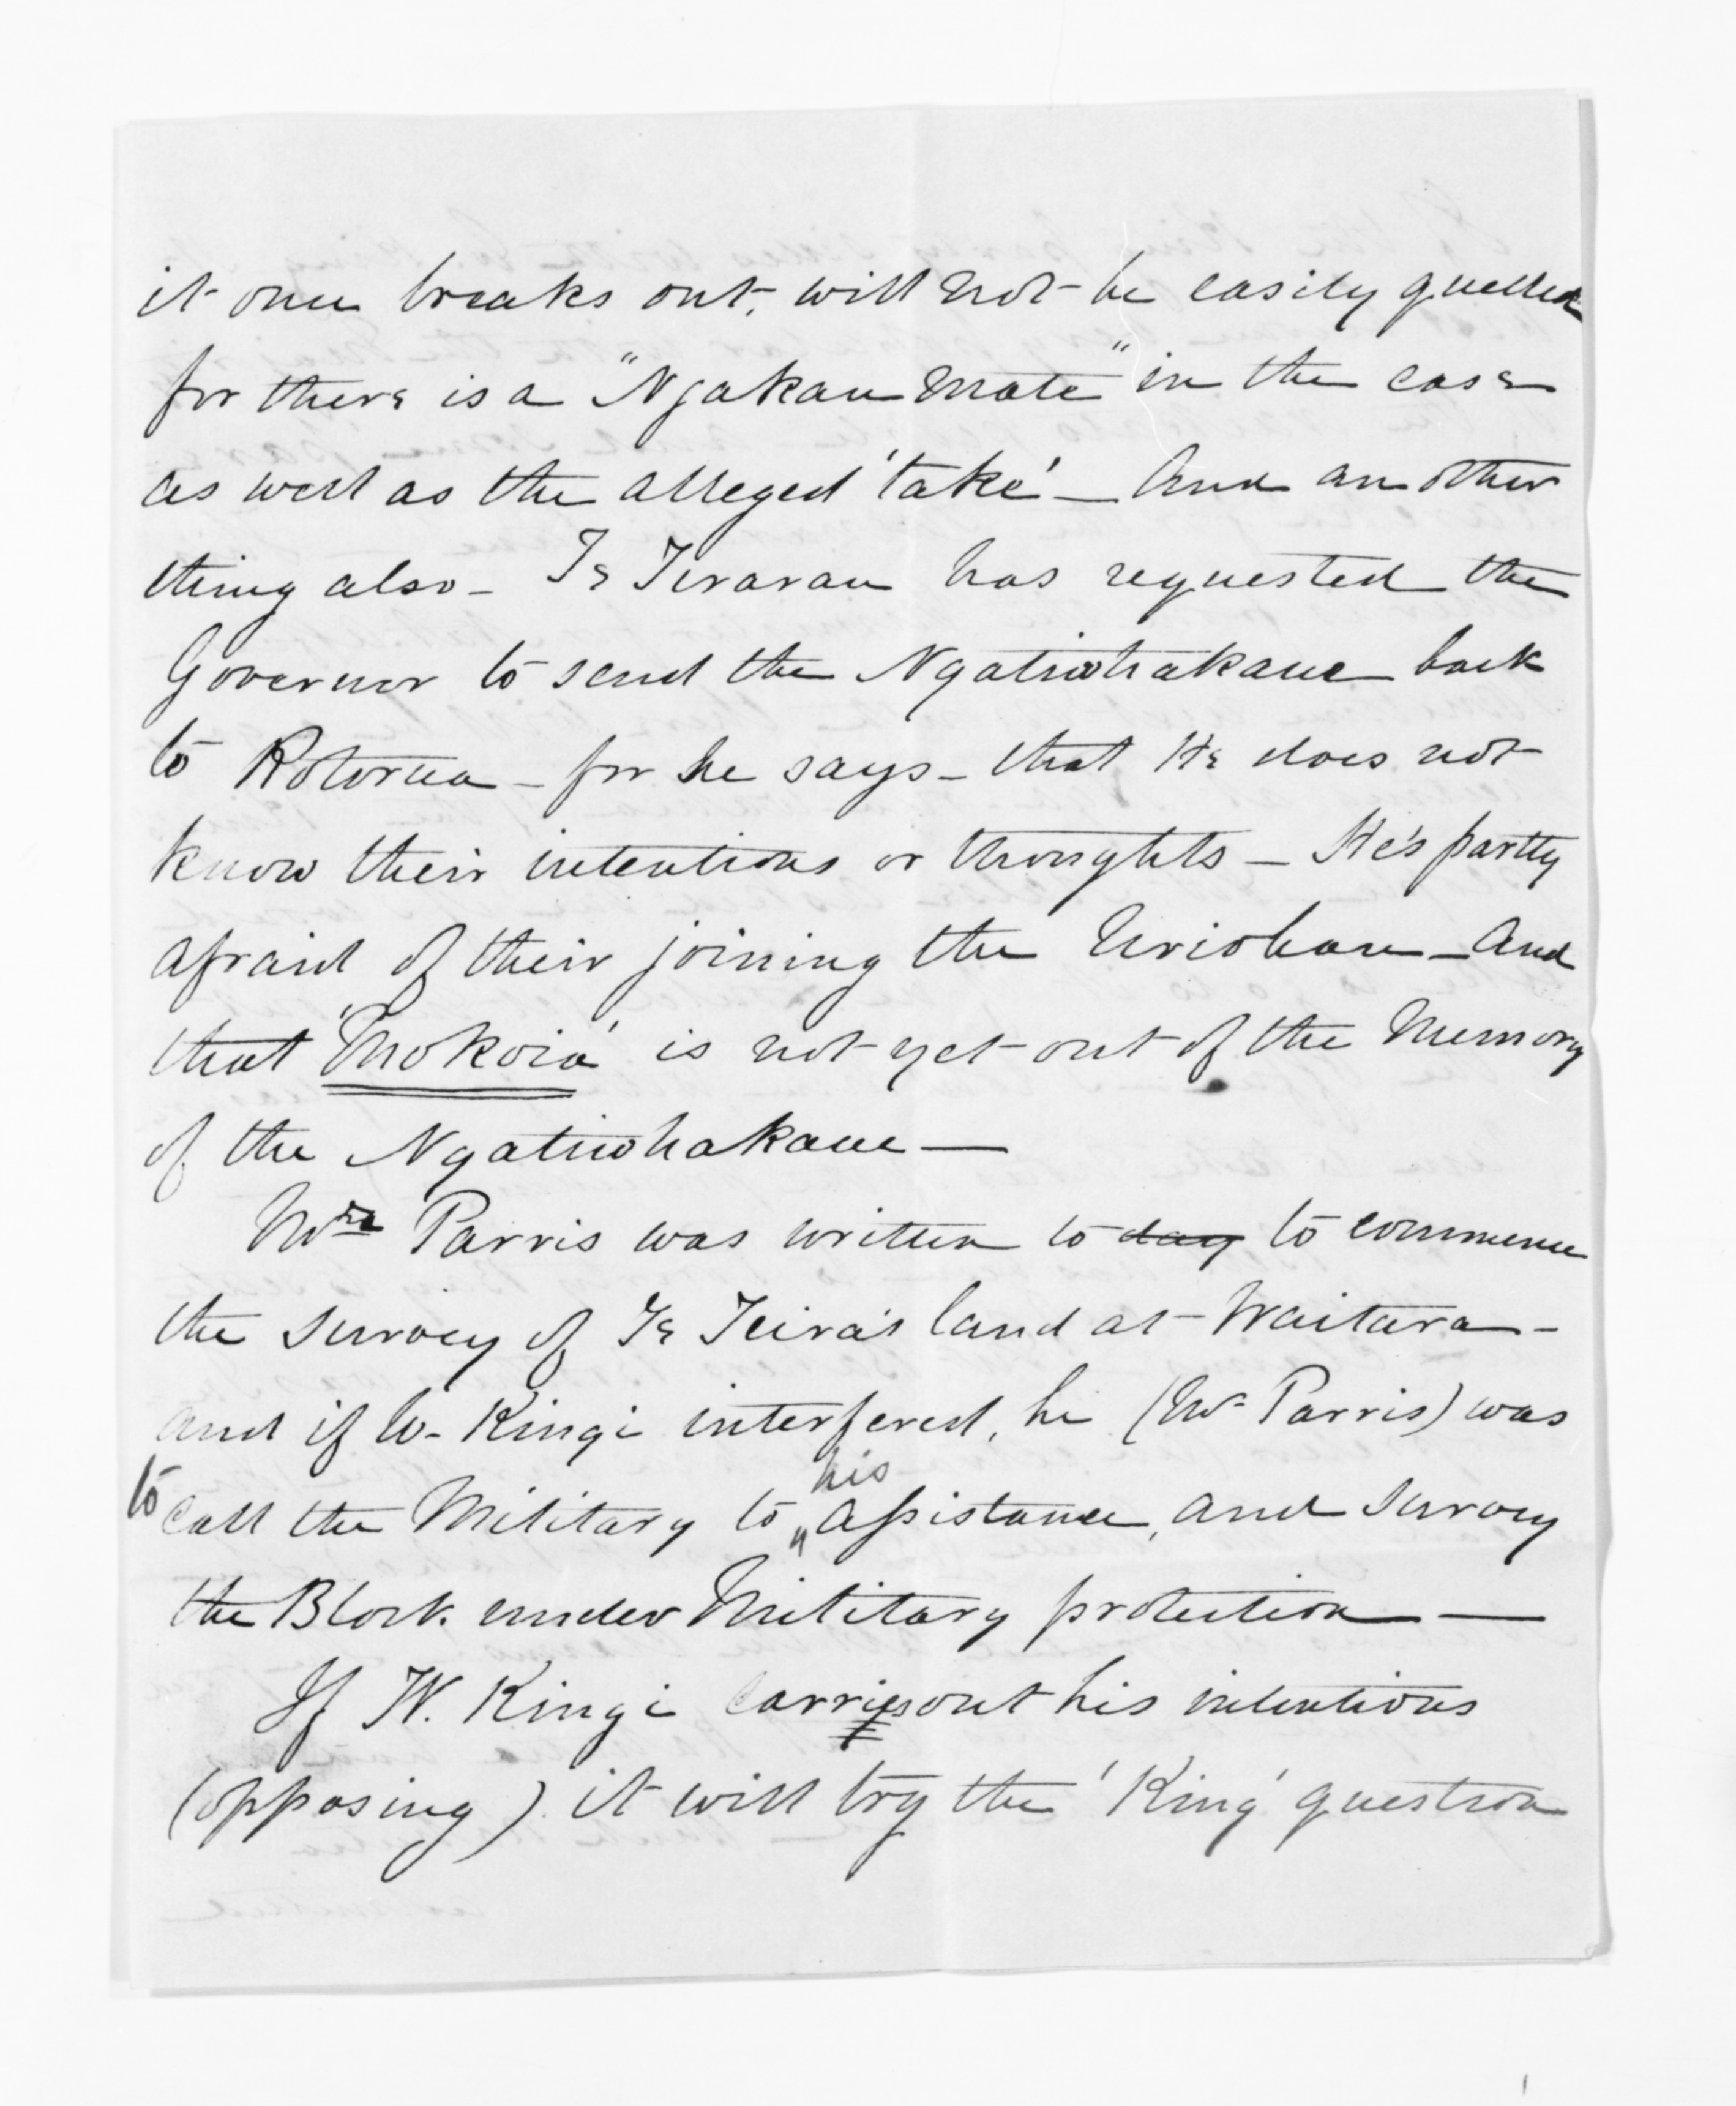 it once breaks out, will not be easily quelled
for there is a "Ngakau mate" in the case
as well as the alleged 'take' — And another
thing also — Te Tirarau has requested the
Governor to send the Ngatiwhakaue back
to Rotorua — for he says — that He does not
know their intentions or thoughts — He's partly
afraid of their joining the Uriohau — And
that 'Mokoia' is not yet out of the Memory
of the Ngatiwhakaue —
Mr Parris was written to day to commence
the survey of Te Teira's land at Waitara —
and if W. Kingi interfered, he (Mr Parris) was
to call the Military to his assistance, and survey
the Block under Military protection —
If W. Kingi carries out his intentions
(opposing) it will try the 'King' question